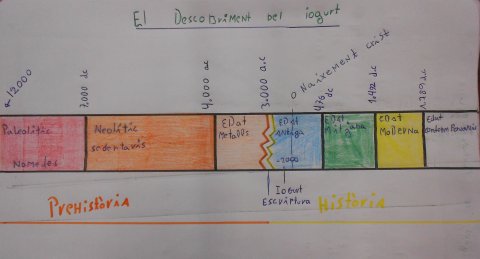 El Descobriment del iogurt
12000
7000 dc
4.000 ac
3.000 a.c
0 Naixement crist
476 dc
1.492 d.c
1.789 d.c
Paleolític
Nomodes
Neolític
sedentaris
EDat
Metalls
EDat
antiga
-2000
EDat
Mitjana
EDat
MoDerna
Edat
Iogurt
Escriptura
PReHistòRia
HistòRia